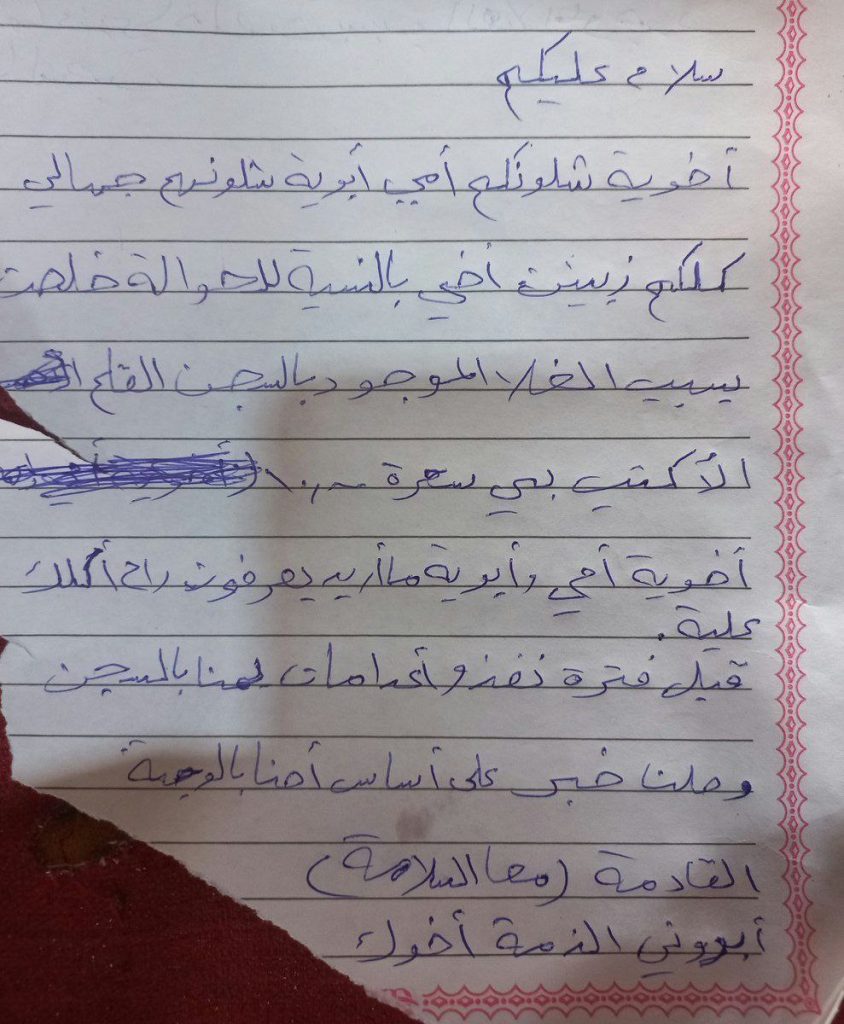 سلام عليكم
أخوية شلونكم أمي أبوية شلونهم جمالي
كلكم زينين أخي بالنسبة للحوالة خلصت
بسبب الغلا الموجود بالسجن القلم
الأكتب بي سعرة ١٠,٠٠٠
أخوية أمي وأبوية ما أريد يعرفون راح أكلك
علية.
قبل فترة نفذو أعدامات يمنا بالسجن
وصلنا خبر على أساس أحنا بالوجبة
القادمة (معا السلامة)
أبروني الذمة أخوك